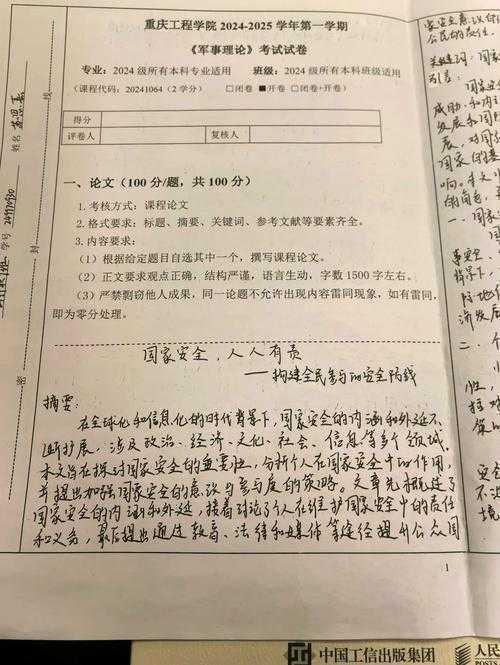 重庆工程学院 2024-2025 学年第一学期
《军事理论》考试试卷
专业：2024 级所有本科专业适用 班级：2024 级所有本科班级适用
（课程代码：20241064（2 学分） □闭卷 ■开卷 □闭卷+开卷）
得分
评卷人 复核人
一、论文（100 分/题，共 100 分）
1. 考核方式：课程论文
2. 格式要求：标题、摘要、关键词、参考文献等要素齐全。
3. 内容要求：
（1）根据给定题目自选其中一个，撰写课程论文。
（2）正文要求观点正确，结构严谨，语言生动，字数 1500 字左右。
（3）严禁剽窃他人成果，同一论题不允许出现内容雷同现象，如有雷同，
即为零分处理。
国家安全，人人有责
——构建全民参与的安全防线
摘要：
在全球化和信息化的时代背景下，国家安全的内涵和外延不
断扩展，涉及政治、经济、文化、社会、信息等多个领域。
本文旨在探讨国家安全的重要性，分析个人在国家安全中的作用，
并提出加强国家安全的意识与参与度的策略。文章先概述了
国家安全的内涵和外延，接着讨论了个人在维护国家安全中的责任
和义务，最后提出通过教育、法律和媒体等途径提升公众国
1
姓名
学号
线
封
密
家安全意识
公民的责任。
关键词：国家
引言：
国家安
发展和
国家的
一、国家
背景下，
济发展
二、个
中国工信出版集团
人民
POSTS